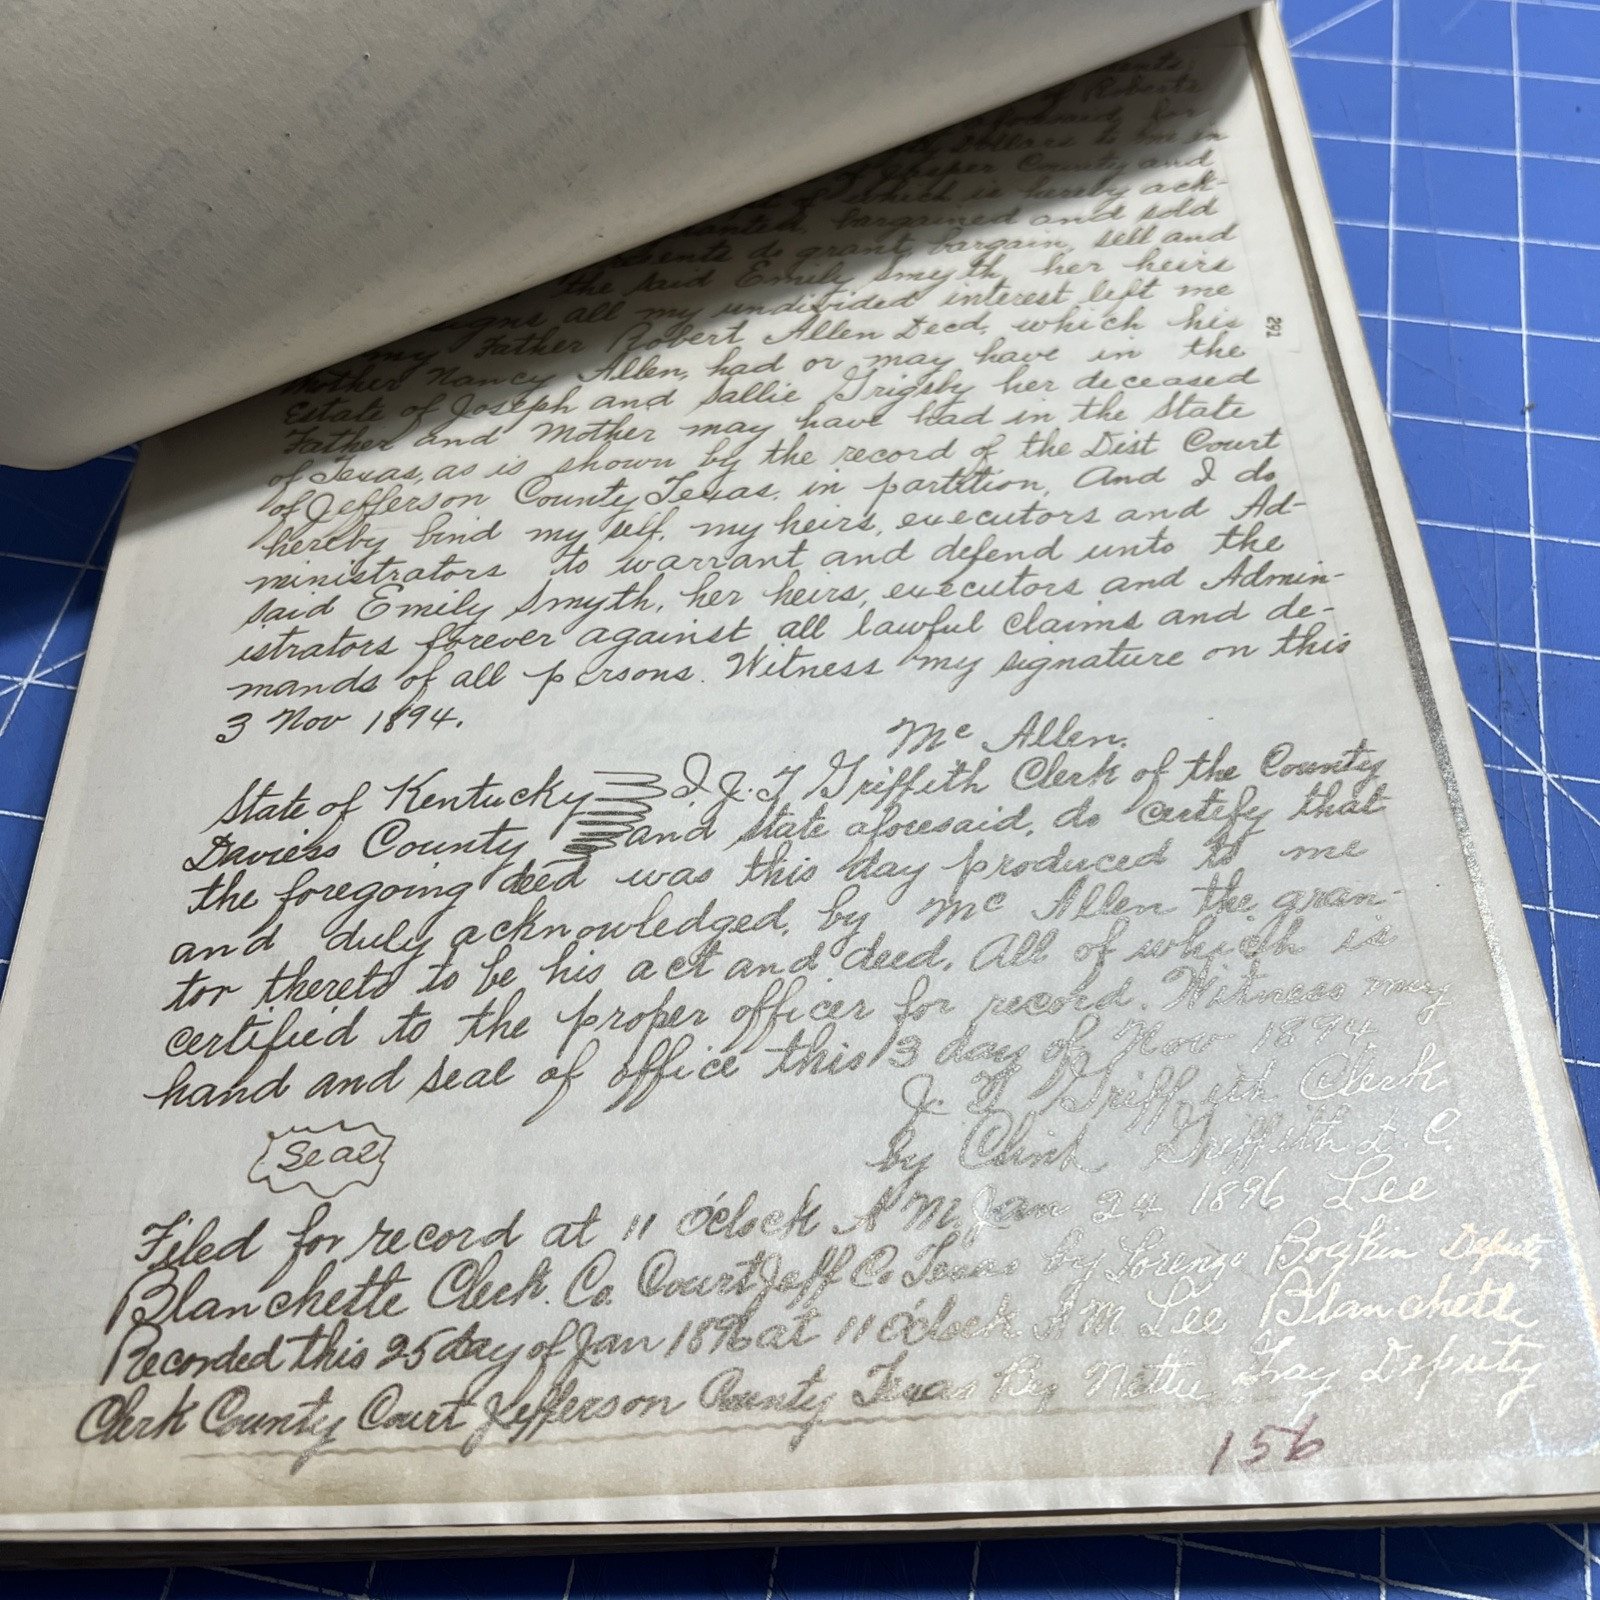 Roberts
aforesaid, for
Dollars to me in
Jasper County and
of which is hereby ack-
bargained and sold
do grant, bargain, sell and
the said Emily Smyth, her heirs
all my undivided interest left me
my Father Robert Allen Decd, which his
Mother Nancy Allen, had or may have in the
Estate of Joseph and Sallie Grigsby her deceased
Father and Mother may have had in the State
of Texas, as is shown by the record of the Dist Court
of Jefferson County Texas, in partition, And I do
hereby bind my self, my heirs, executors and Ad-
ministrators to warrant and defend unto the
said Emily Smyth, her heirs, executors and Admin-
istrators forever against all lawful claims and de-
mands of all persons. Witness my signature on this
3 Nov 1894.
Mc Allen.
State of Kentucky I. J. T Griffith Clerk of the County
Daviess County and state aforesaid, do certify that
the foregoing deed was this day produced to me
and duly acknowledged, by Mc Allen the gran-
tor thereto to be his act and deed, All of which is
certified to the proper officer for record. Witness my
hand and seal of office this 3 day of Nov 1894.
J. T Griffith Clerk
by Clint Griffith D. C.
Seal
Filed for record at 11 o'clock A M. Jan 24 1896 Lee
Blanchette Clerk. Co. Court Jeff Co Texas by Lorenzo Boykin Deputy
Recorded this 25 day of Jan 1896 at 11 o'clock A M Lee Blanchette
Clerk County Court Jefferson County Texas By Nettie Gay Deputy
156
291